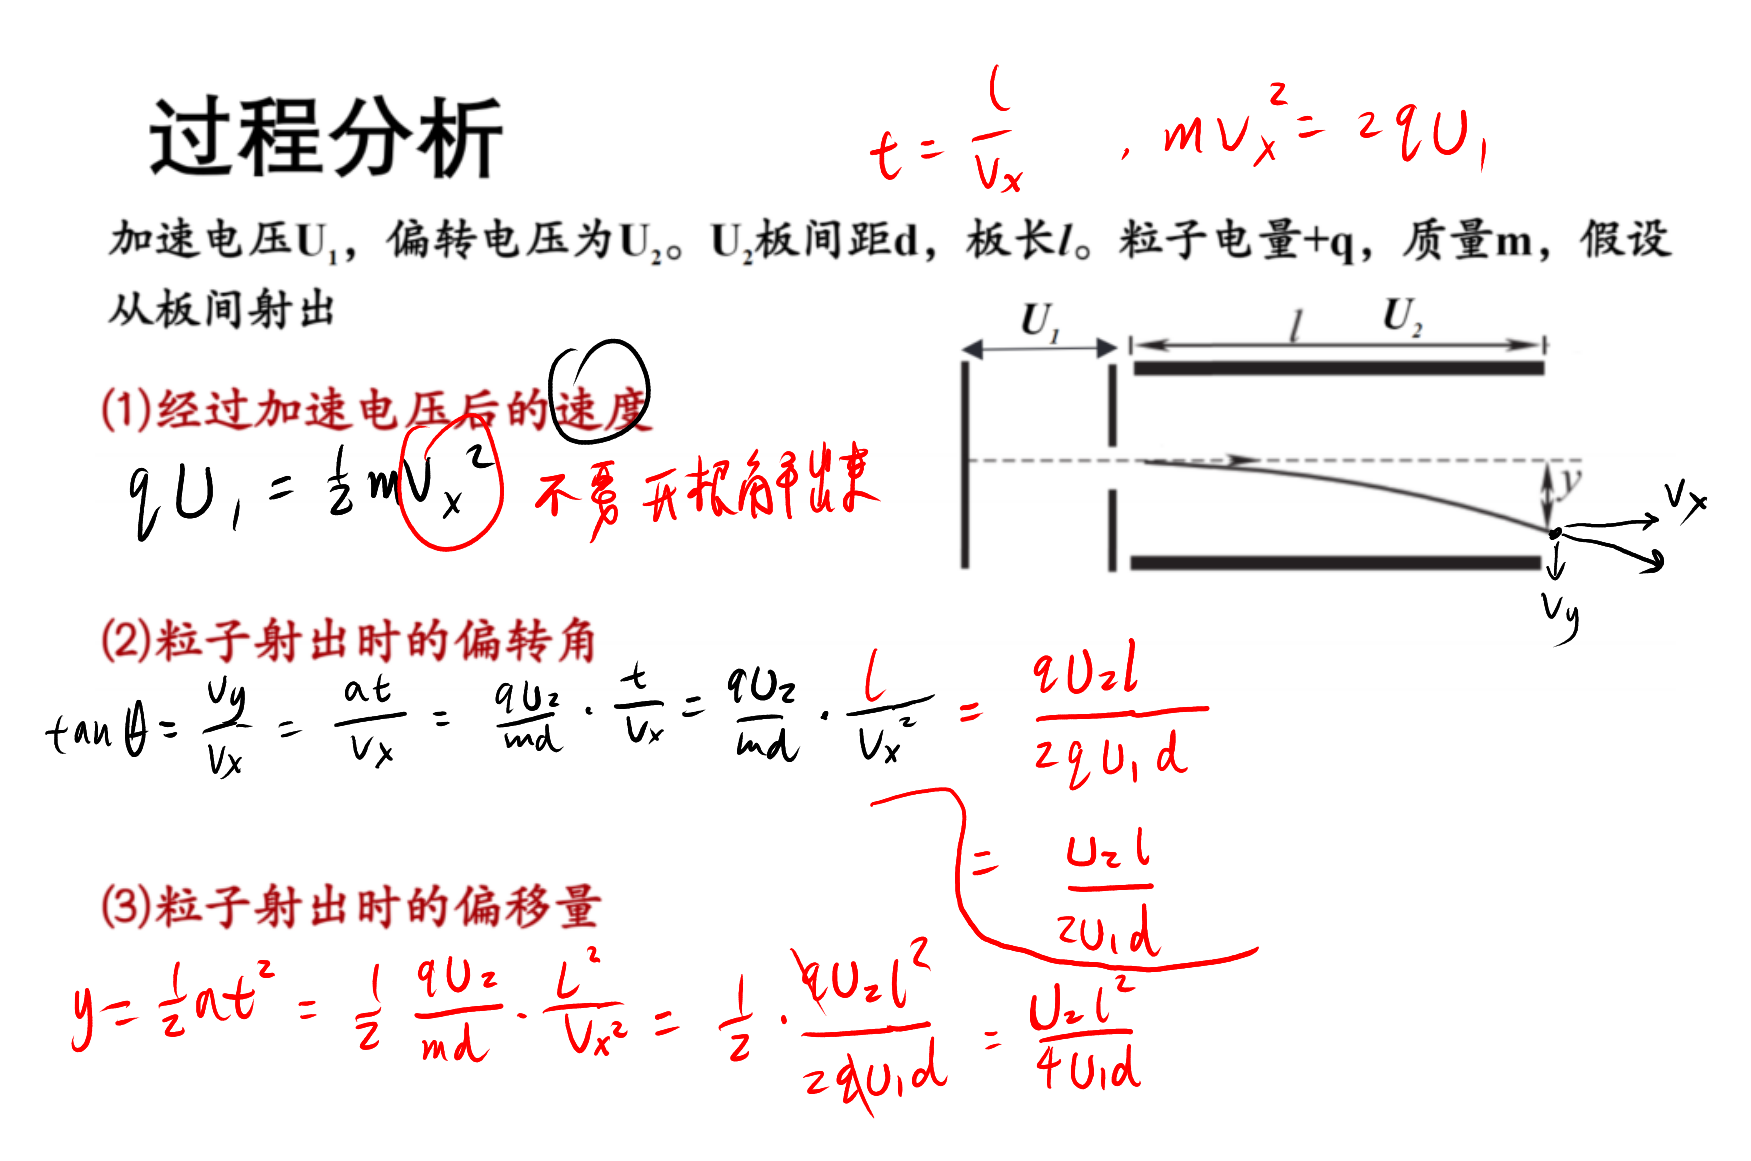 过程分析
t = l/Vx , mVx² = 2qU₁
加速电压U₁，偏转电压为U₂。U₂板间距d，板长l。粒子电量+q，质量m，假设
从板间射出
U₁ l U₂
(1)经过加速电压后的速度
qU₁ = ½mVx² 不要开根解出来
y
Vx
Vy
(2)粒子射出时的偏转角
tanθ = Vy/Vx = at/Vx = qU₂/md · t/Vx = qU₂/md · l/Vx² = qU₂l/2qU₁d
= U₂l/2U₁d
(3)粒子射出时的偏移量
y = ½at² = ½ qU₂/md · L²/Vx² = ½ · qU₂l²/2qU₁d = U₂l²/4U₁d